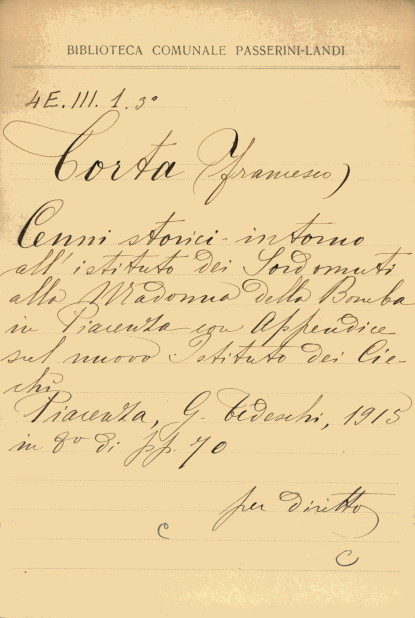 BIBLIOTECA COMUNALE PASSERINI-LANDI
4E.III.1.3°
Corta (Francesco)
Cenni storici intorno
all'istituto dei Sordomuti
alla Madonna della Bomba
in Piacenza con Appendice
sul nuovo Istituto dei Cie-
chi
Piacenza, G. Tedeschi, 1915
in 8° di pp. 70
per diritto
C
C